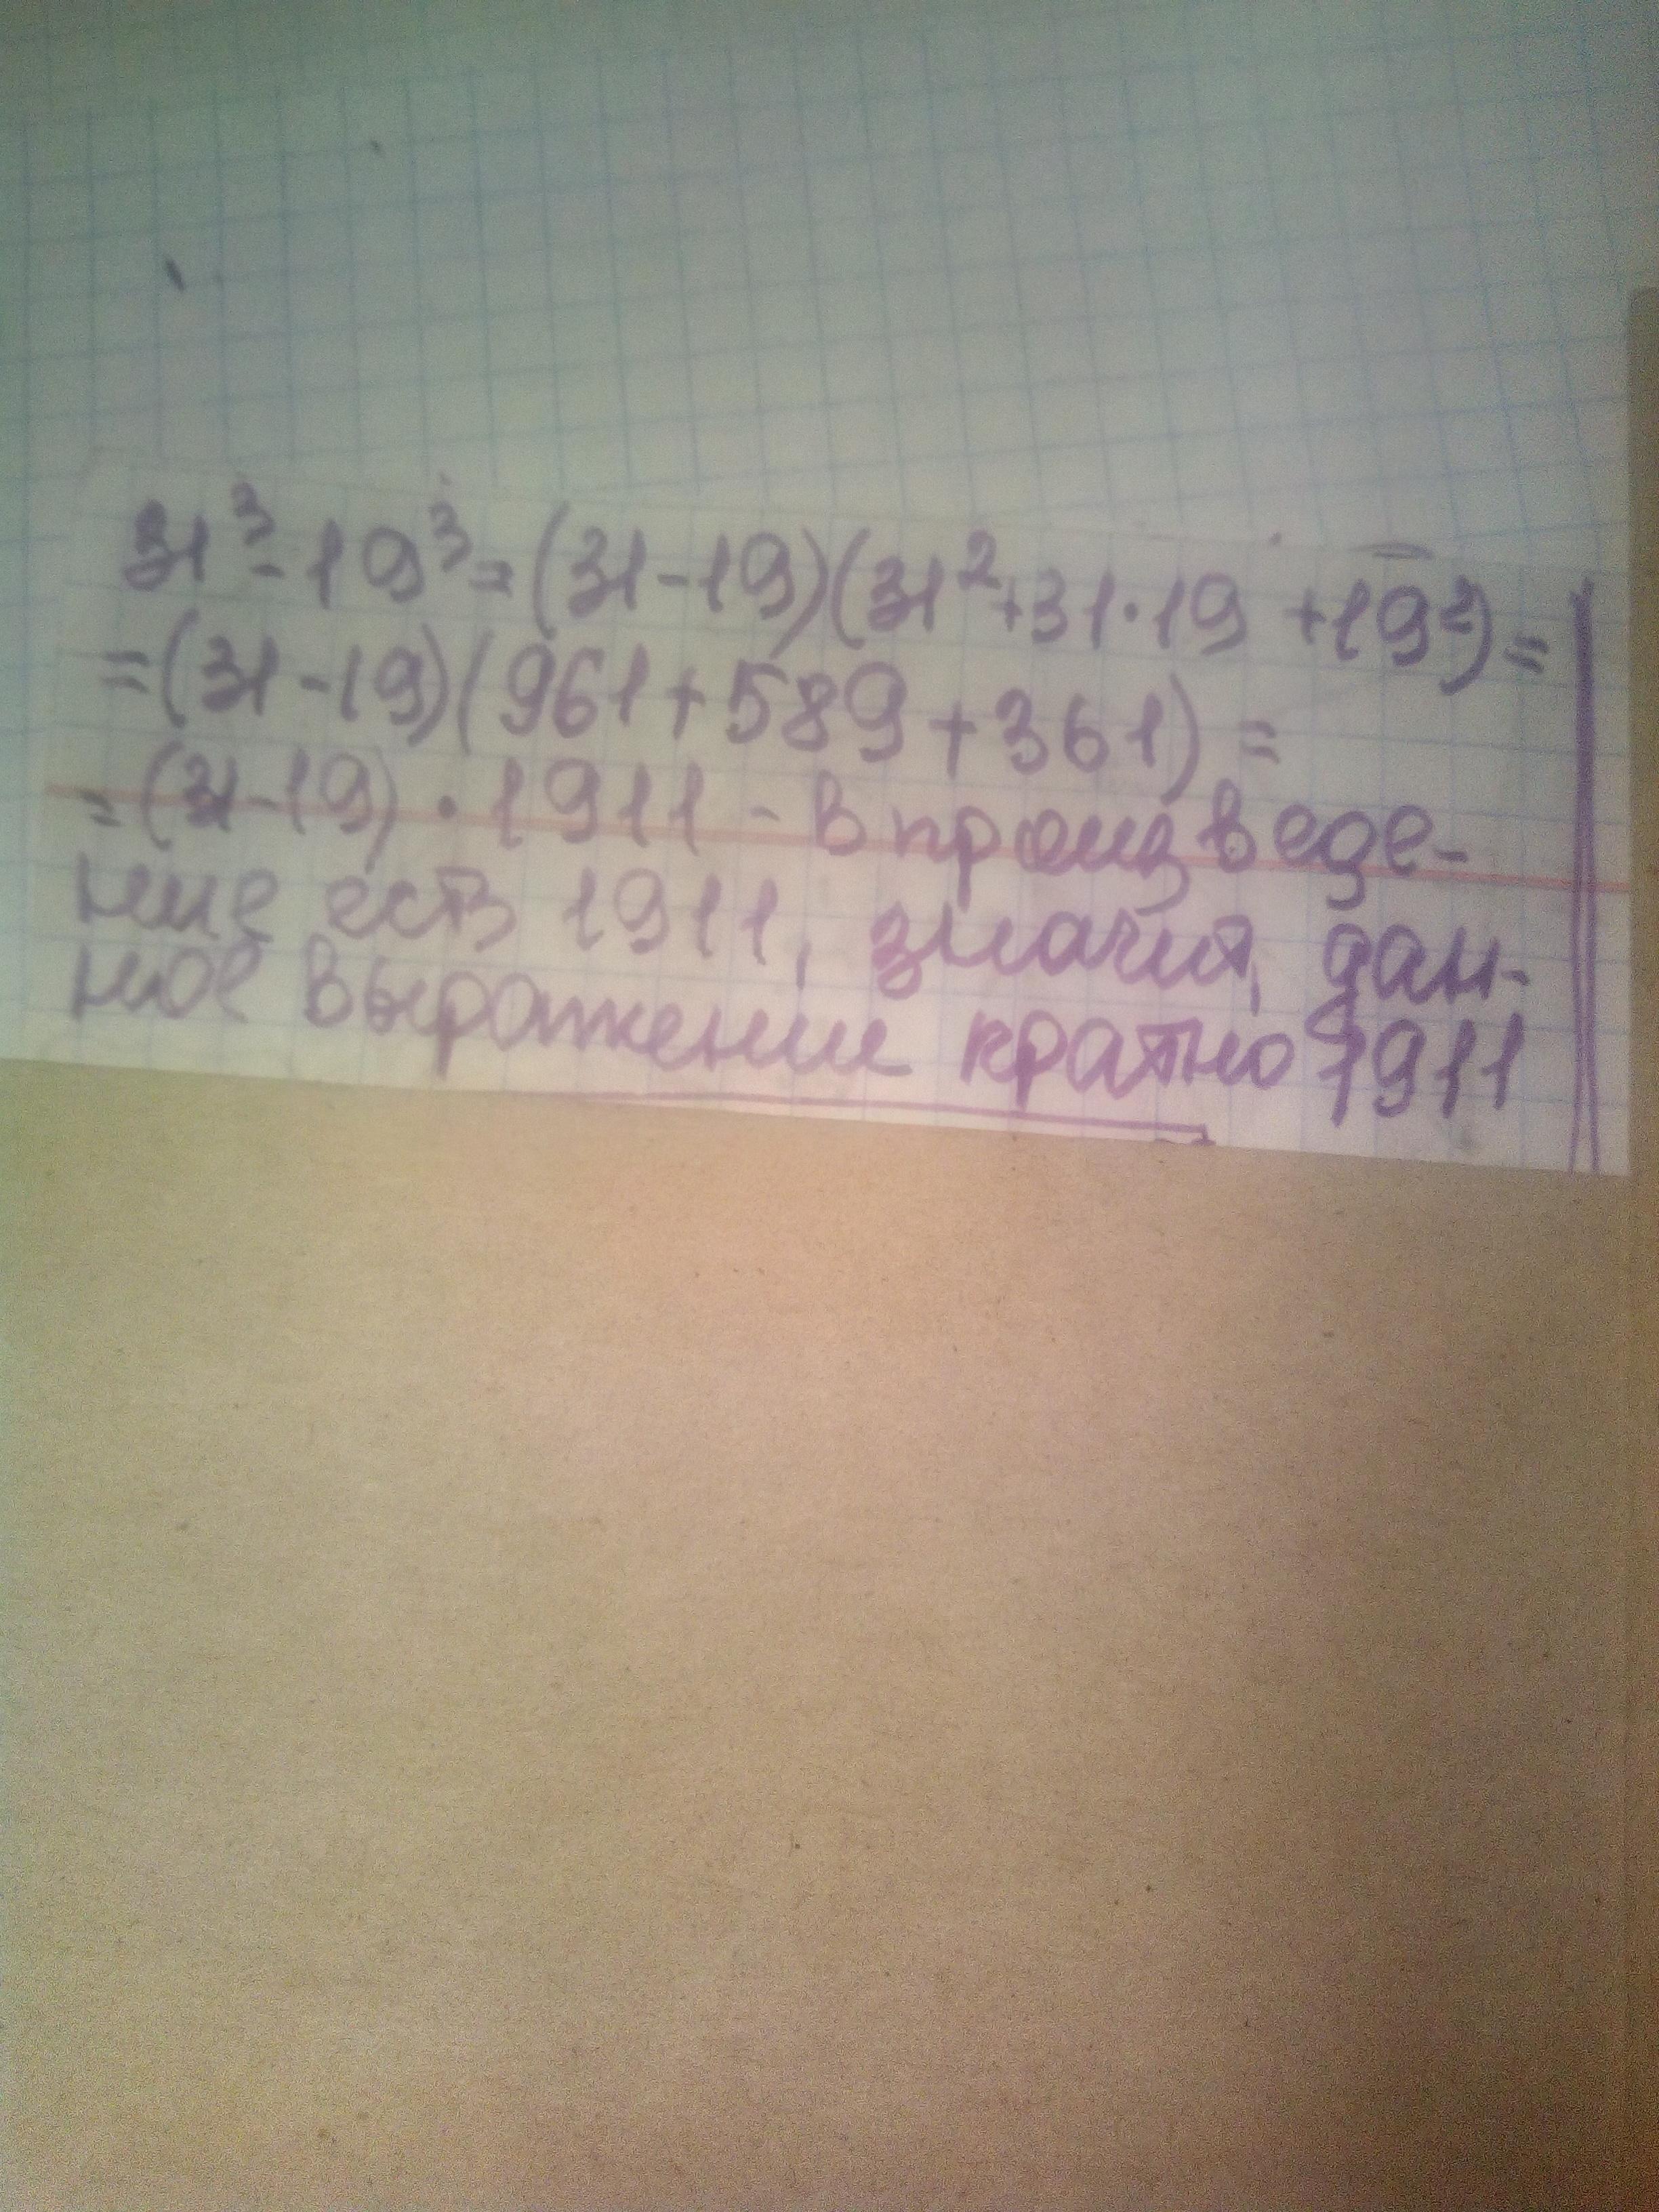 31³-19³=(31-19)(31²+31·19+19²)=
=(31-19)(961+589+361)=
=(31-19)·1911 - в произведе-
ние есть 1911, значит, дан-
ное выражение кратно 1911